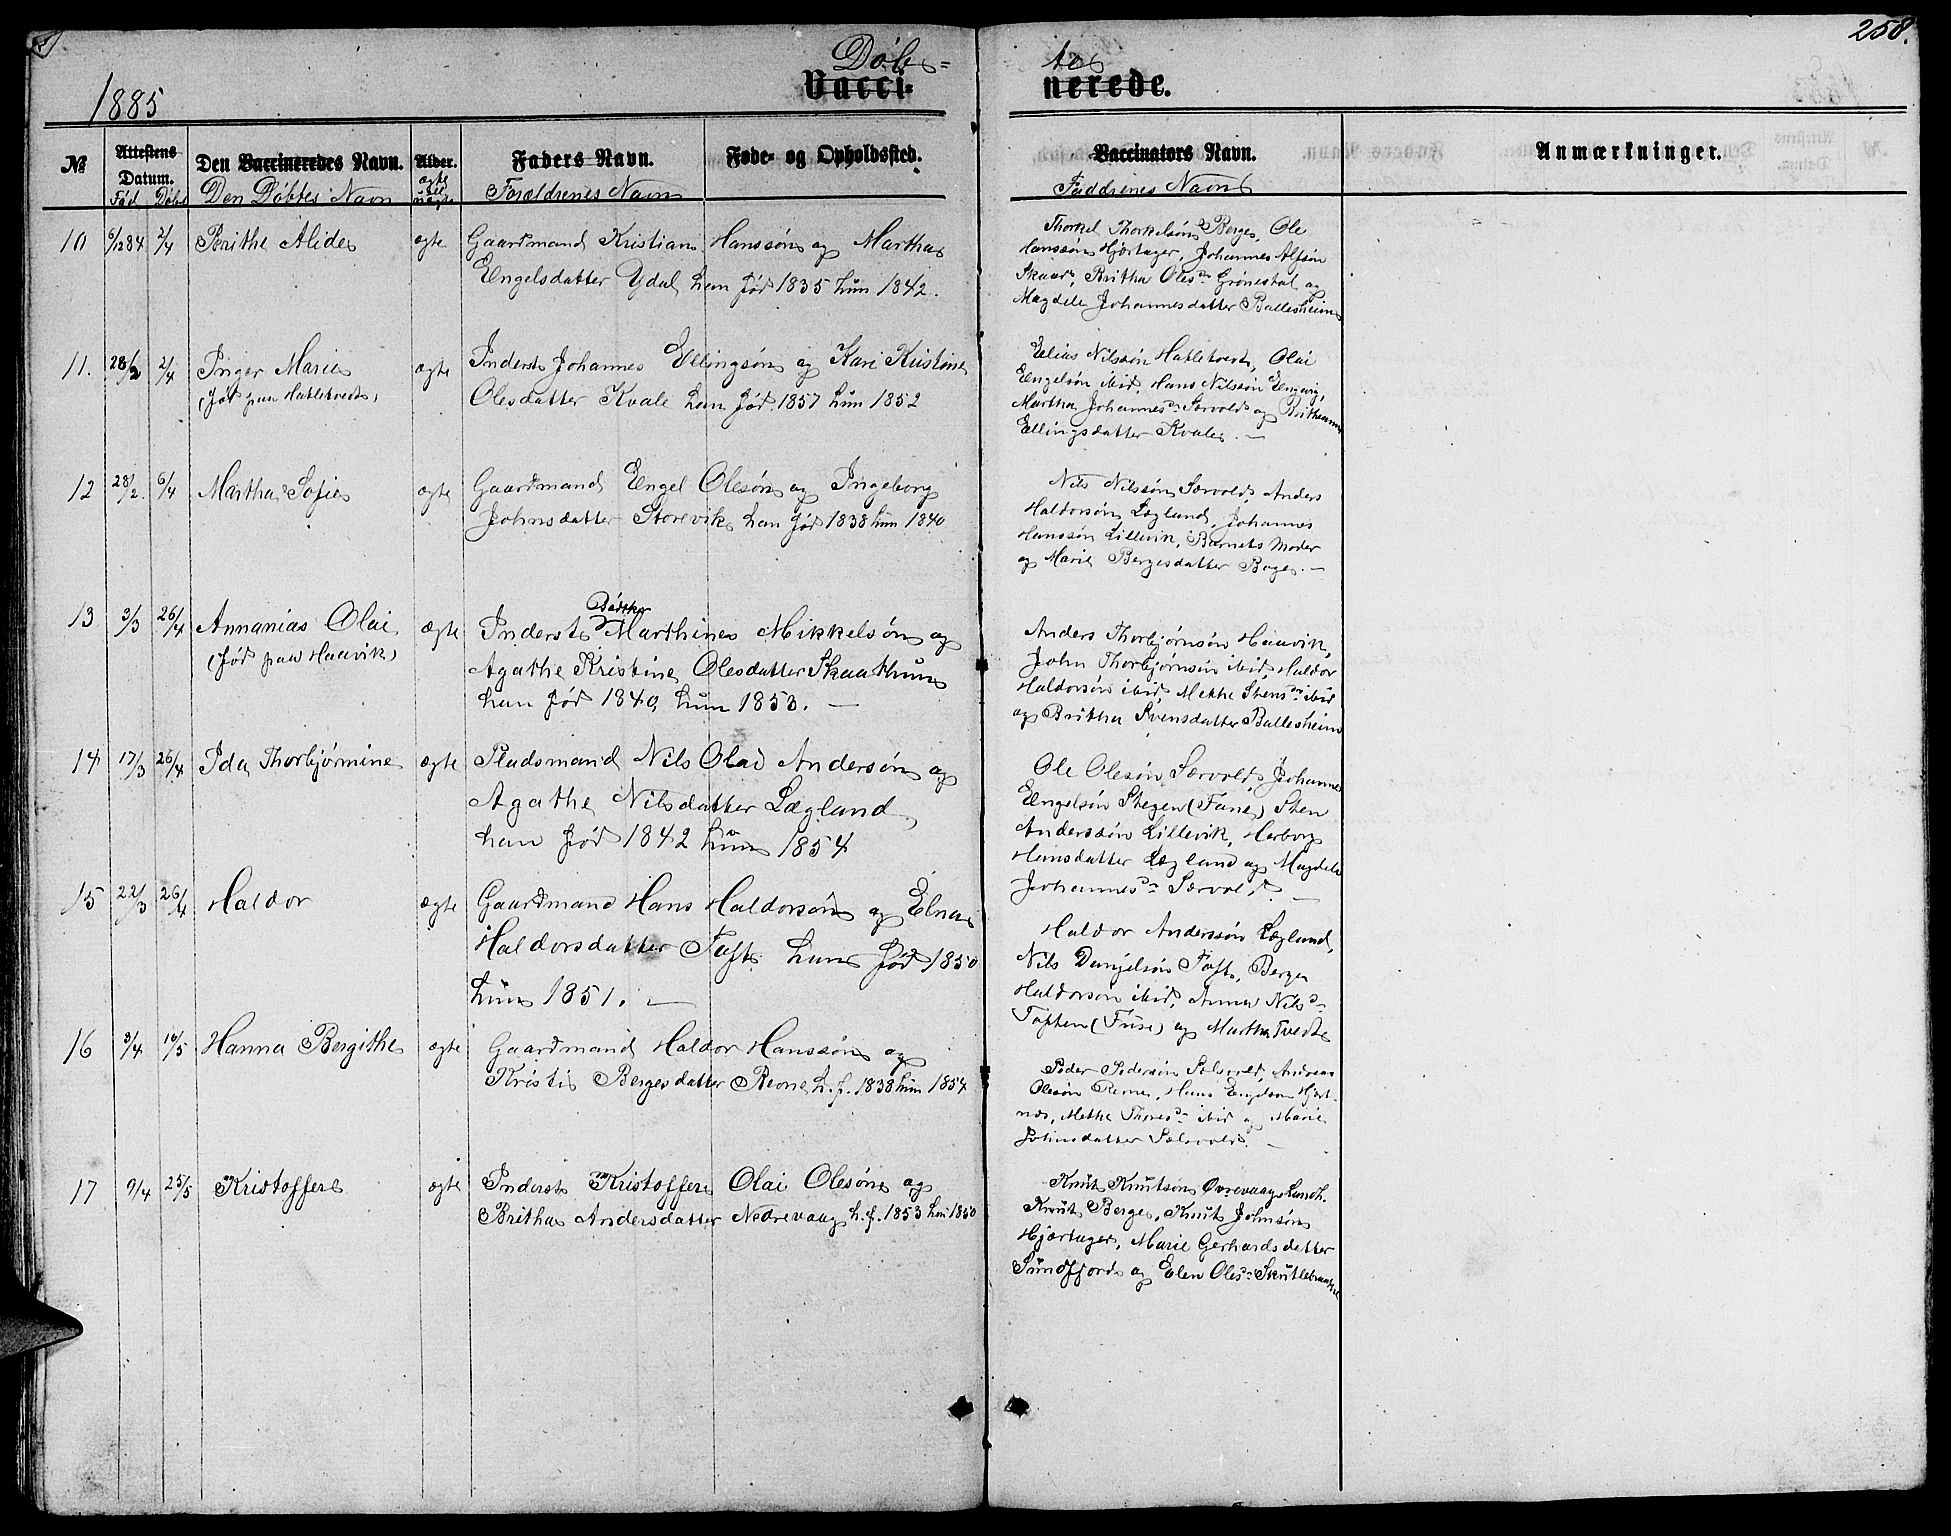 258.
1885
Døbte
Vaccinerede.
№
Attestens Datum.
Født Døbt
Den Vaccineredes Navn.
Den Døbtes Navn
Alder.
ægte el. uægte
Faders Navn.
Forældrenes Navn
Føde- og Opholdssted.
Vaccinators Navn.
Faddrenes Navn
Anmærkninger.
10 6/12 84 2/4 Brithe Alide ægte Gaardmand Kristian Hanssøn og Martha
Engelsdatter Ydal han född 1835 hun 1842.
Thorkel Thorkelsøn Berge, Ole
Hanssøn Hjertager, Johannes Alfsøn
Skaar, Britha Olesdr Grønestøl og
Magdele Johannesdatter Ballesheim
11. 28/2 2/4 Inger Marie ægte Inderst Johannes Ellingsøn og Kari Kristine
(født paa Hatletvedt) Olesdatter Kvale han født 1857 hun 1852
Elias Nilssøn Hatletvedt, Olai
Engelsøn ibid, Hans Nilssøn Engevig,
Martha Johannesdr Sævold og Britheanna
Ellingsdatter Kvale. —
12 28/2. 6/4 Martha Sofie ægte Gaardmand Engel Olesøn og Ingeborg
Johnsdatter Storevik han født 1838 hun 1840
Nils Nilssøn Sævold, Anders
Haldorsøn Lægland, Johannes
Hanssøn Lillevik, Barnets Moder
og Marie Bergesdatter Boge. —
13 3/3 26/4 Annanias Olai ægte Inderst Bødtker Marthines Mikkelsøn og
(født paa Haavik) Agathe Kristine Olesdatter Skaathun
han født 1840, hun 1853. —
Anders Thorbjørnsøn Haavik,
John Thorbjørnsøn ibid, Haldor
Haldorsøn ibid, Methe Stensdr ibid
og Britha Svensdatter Ballesheim
14 17/3 26/4 Ida Thorbjørnine ægte Pladsmand Nils Olai Andersøn og
Agathe Nilsdatter Lægland
han født 1842 hun 1854
Ole Olesøn Sævold, Johannes
Engelsøn Stegen (Fane) Sten
Anderssøn Lillevik, Herborg
Hansdatter Lægland og Magdele
Johannesdr Sævold. —
15 22/3 26/4 Haldor ægte Gaardmand Hans Haldorsøn og Elna
Haldorsdatter Toft han født 1850
hun 1851. —
Haldor Anderssøn Lægland,
Nils Danjelsøn Toft, Berge
Haldorsøn ibid, Anna Nilsdr
Toften (Fuse) og Martha Tvedte
16 3/4 10/5 Hanna Bergithe ægte Gaardmand Haldor Hanssøn og
Kristi Bergesdatter Revne h. f. 1838 hun 1854
Peder Pedersøn Sælsvold, Andreas
Olesøn Revne, Hans Engelsøn Hjert-
næs, Methe Thoresdr ibid og Marie
Johnsdatter Sælsvold. —
17 9/4 25/5 Kristoffer ægte Inderst Kristoffer Olai Olesøn og
Britha Andersdatter Nedrevaag h. f. 1853 hun 1850
Knut Knutsøn Øvrevaag, Lensh.
Knut Berge, Knut Johnsøn
Hjertager, Marie Gerhardsdatter
Sundfjord og Elen Olesdr Skutlebrække